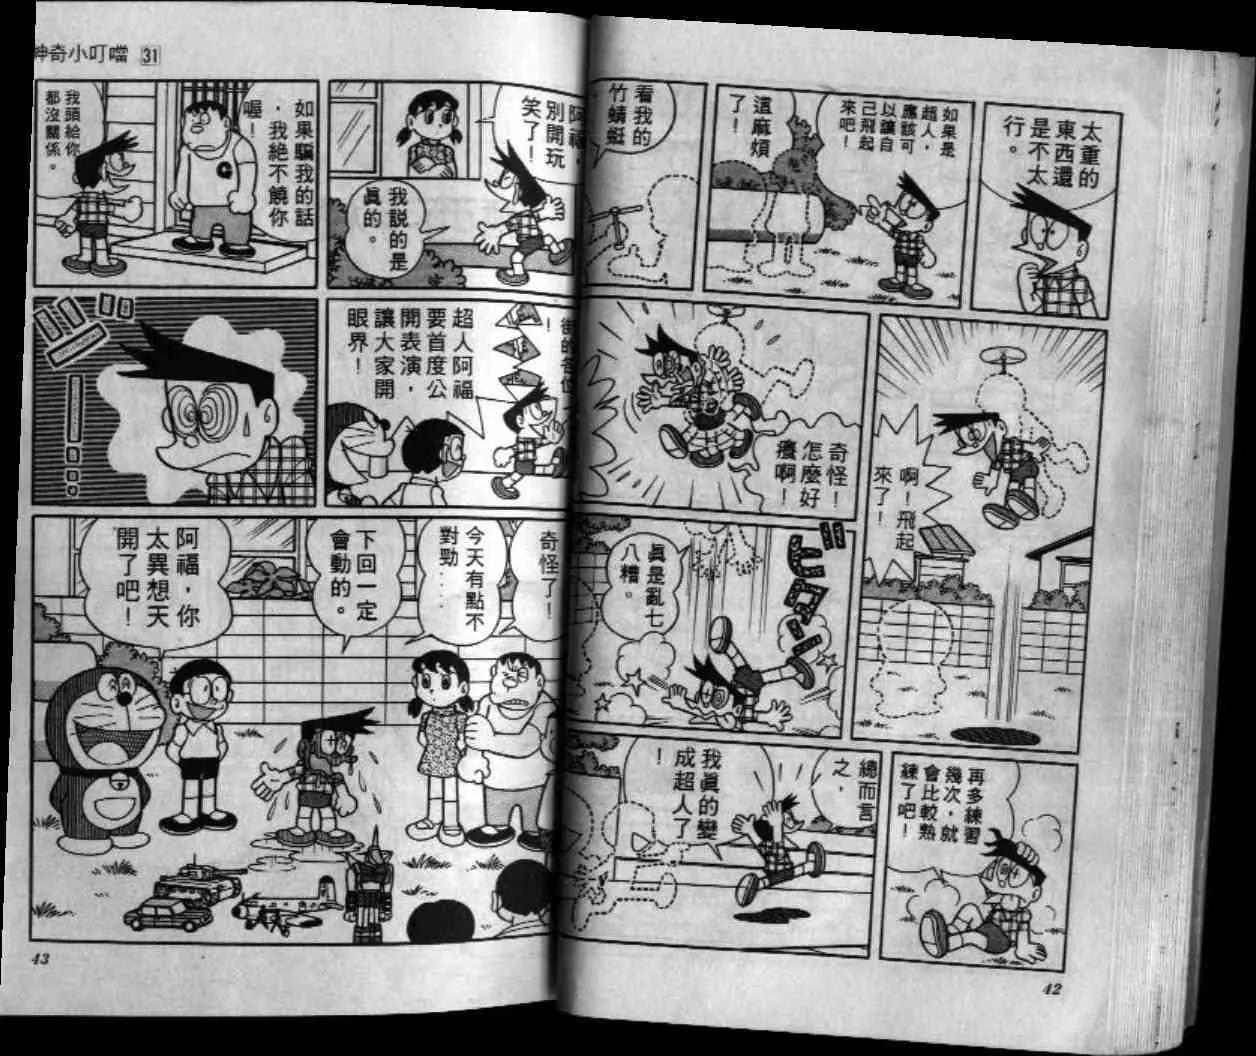 太重的
東西還
是不太
行。
如果是
超人，
應該可
以讓自
己飛起
來吧！
這麻煩
了！
看我的
竹蜻蜓
啊！飛起
來了！
奇怪！
怎麼好
癢啊！
真是亂七
八糟。
再多練習
幾次，就
會比較熟
練了吧！
總而言
之，
我真的變
成超人了
！
42
神奇小叮噹 31
阿福，
別開玩
笑了！
我說的是
真的。
如果騙我的話
，我絕不饒你
喔！
我頭給你
都沒關係。
超人阿福
要首度公
開表演，
讓大家開
眼界！
奇怪了！
今天有點不
對勁……
下回一定
會動的。
阿福，你
太異想天
開了吧！
43